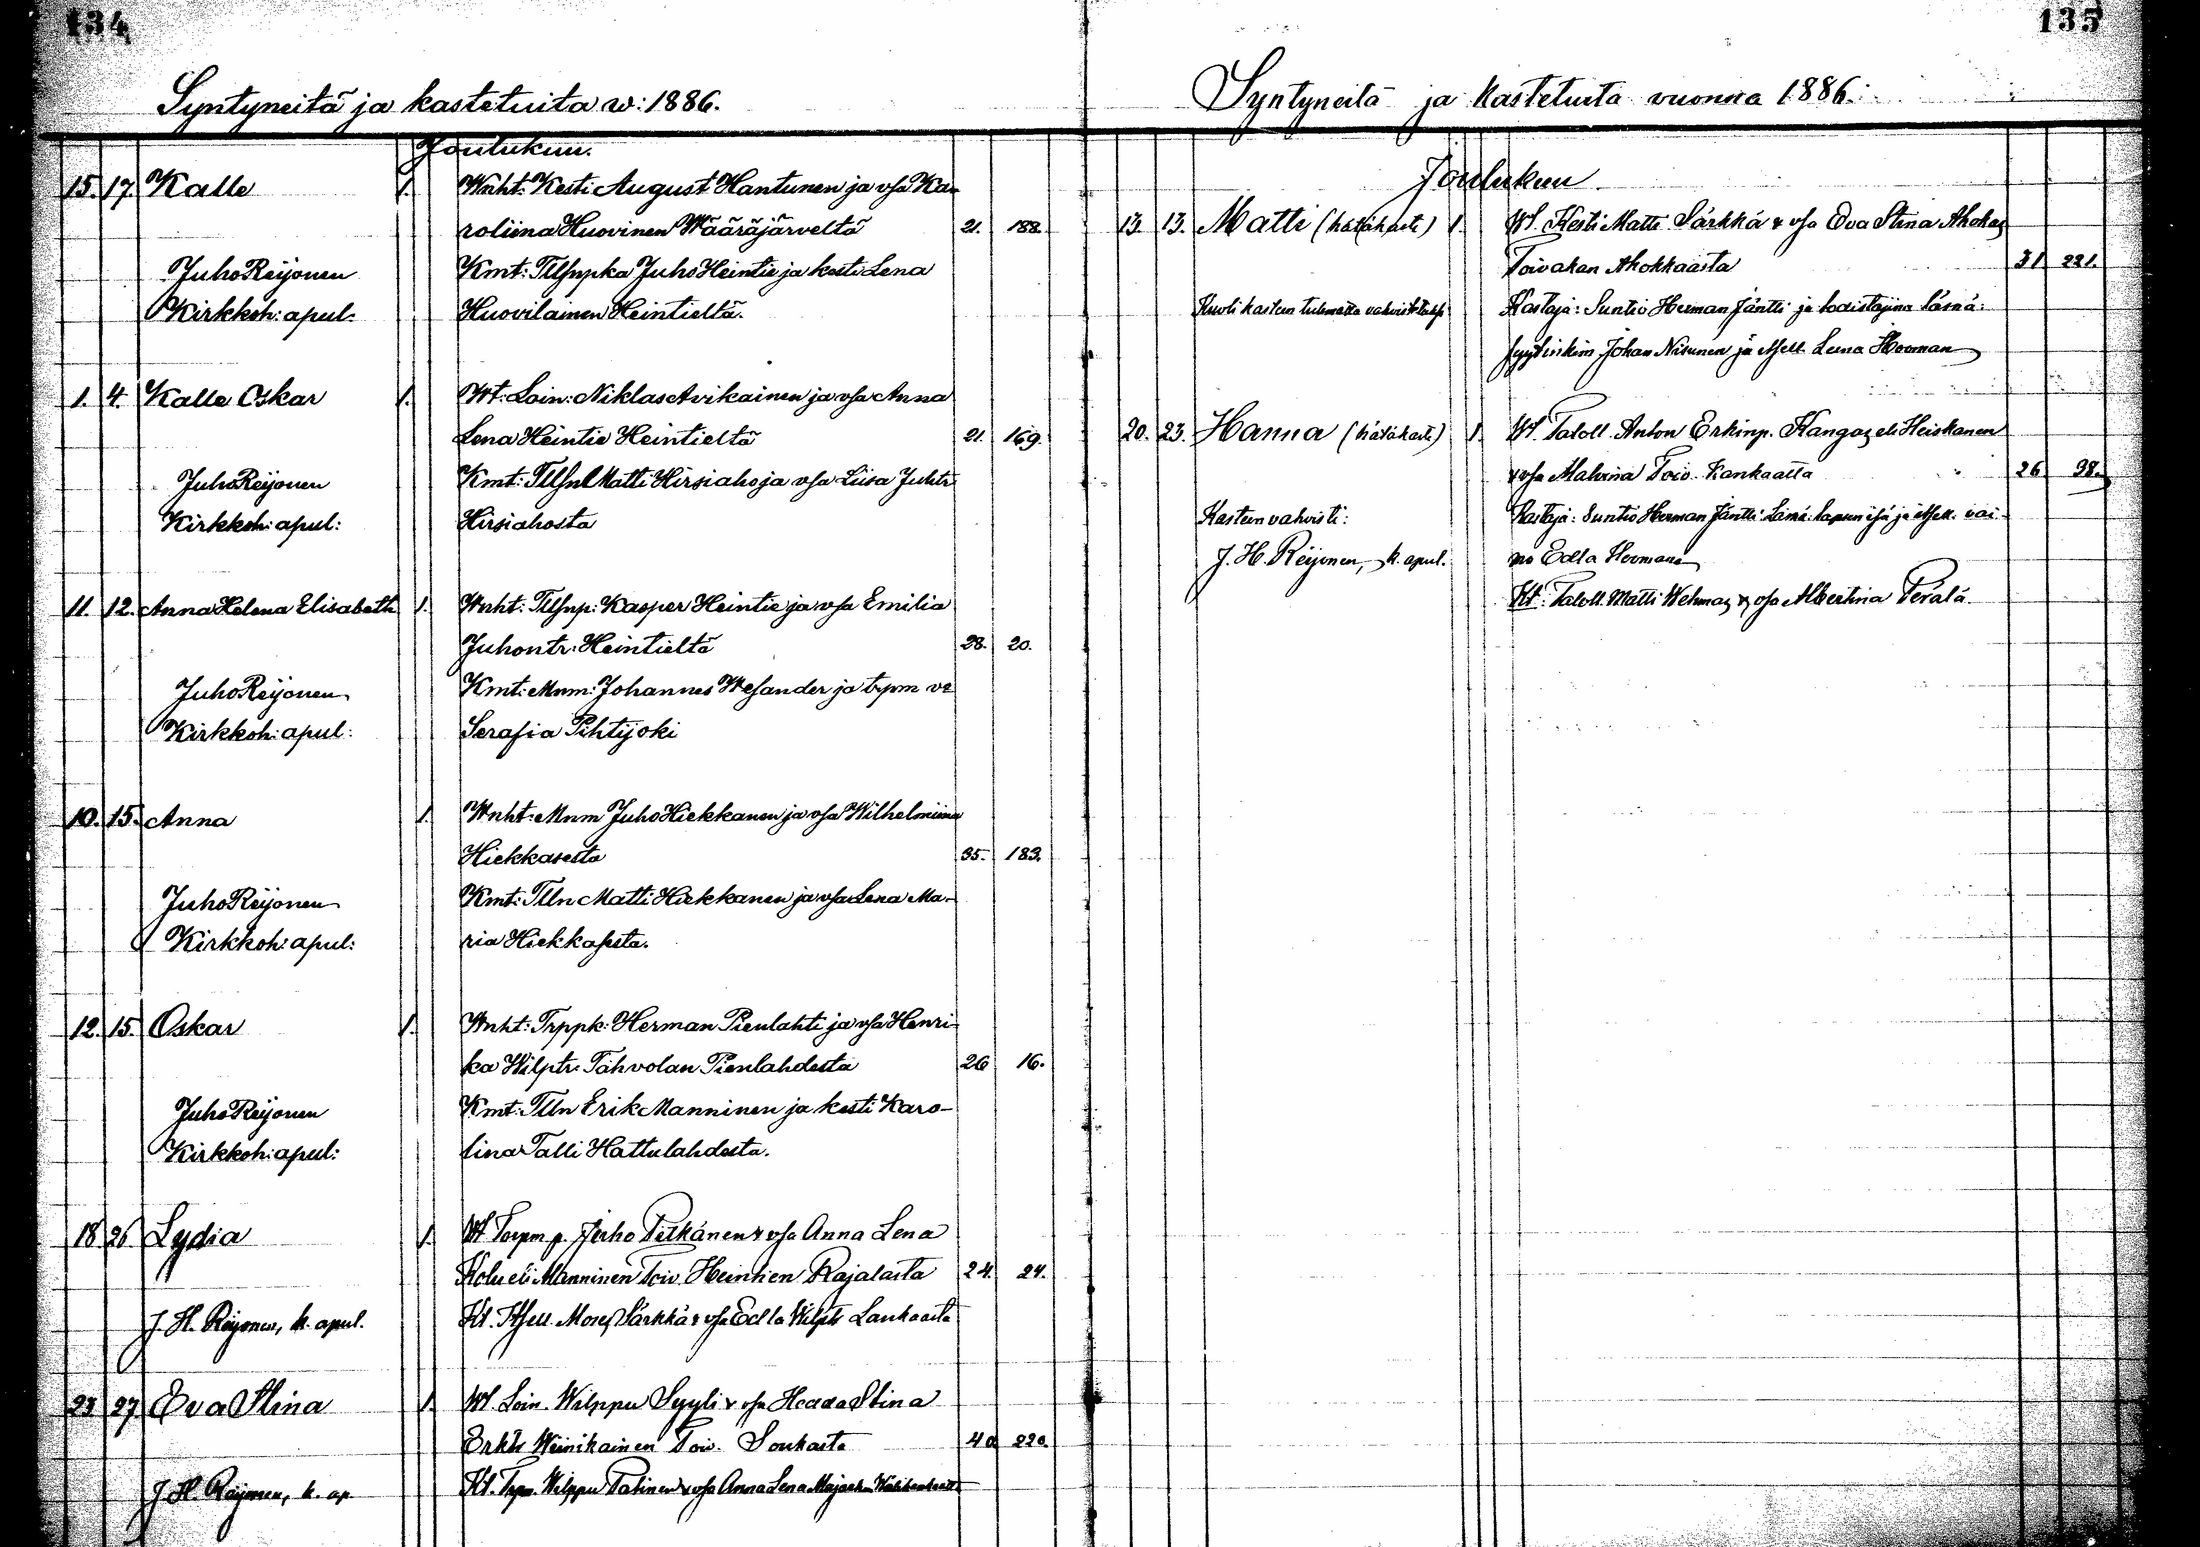 134
Syntyneitä ja kastetuita w: 1886.
Joulukuu.
15. 17. Kalle 1. Wnht: Kesti August Hantunen ja vsa Ka-
roliina Huovinen Wääräjärveltä 21. 188.
Juho Reijonen Kmt: Tllsnpka Juho Heintie ja kesti Lena
Kirkkoh: apul: Huovilainen Heintieltä.
1. 4. Kalle Oskar 1. Wt: Loin: Niklas Avikainen ja vsa Anna
Lena Heintie Heintieltä 21. 169.
Juho Reijonen Kmt: Tllsn Matti Hirsiaho ja vsa Liisa Juhtr
Kirkkoh: apul: Hirsiahosta
11. 12. Anna Helena Elisabeth 1. Wnht: Tllsnp: Kasper Heintie ja vsa Emilia
Juhontr: Heintieltä 28. 20.
Juho Reijonen Kmt: Mnm: Johannes Wesander ja trpm vs
Kirkkoh: apul: Serafia Pihtijoki
10. 15. Anna 1. Wnht: Mnm Juho Hiekkanen ja vsa Wilhelmiina
Hiekkasesta 35. 183.
Juho Reijonen Kmt: Tlln Matti Hiekkanen ja vsa Lena Ma-
Kirkkoh: apul: ria Hiekkasesta.
12. 15. Oskar 1. Wnht: Trppk: Herman Pienlahti ja vsa Henri-
ka Wilptr: Tahvolan Pienlahdesta 26 16.
Juho Reijonen Kmt: Tlln Erik Manninen ja kesti Karo-
Kirkkoh: apul: lina Talli Hattulahdesta.
18 26 Lydia 1. Wt Torpm p. Juho Pitkänen & vsa Anna Lena
Kolu eli Manninen Toiv. Heintien Rajalasta 24. 24.
J. H. Reijonen, k. apul. Kt. Moses Särkkä & vsa Edla Wilptr Laukaasta
23 27 Eva Stina 1. Wt. Loin. Wilppu Syyli & vsa Hedda Stina
Erktr Weinikainen Toiv. Soukasta 40 220.
J. H. Reijonen, k. ap. Kt. Trpm. Wilppu Tatinen & vsa Anna Lena
135
Syntyneitä ja kastetuita vuonna 1886.
Joulukuu
13. 13. Matti (hätäkaste) 1. Wt. Kesti Matti Särkkä & vsa Eva Stina Ahokas
Toivakan Ahokkaasta 31 221.
Kuoli kasteen tulematta vahvistetuksi Kastaja: Suntio Herman Jäntti ja todistajina läsnä:
Johan Nisunen ja itsell. Leena Hooman
20. 23. Hanna (hätäkaste) 1. Wt. Taloll. Anton Erkinp. Kangas eli Heiskanen
& vsa Malvina Toiv. Kankaalta 26 98.
Kasteen vahvisti: Kastaja: Suntio Herman Jäntti. Läsnä: lapsen isä ja itsell. vai-
J. H. Reijonen, k. apul. mo Edla Hooman
Kt: Taloll. Matti Wehmas & vsa Albertina Perälä.